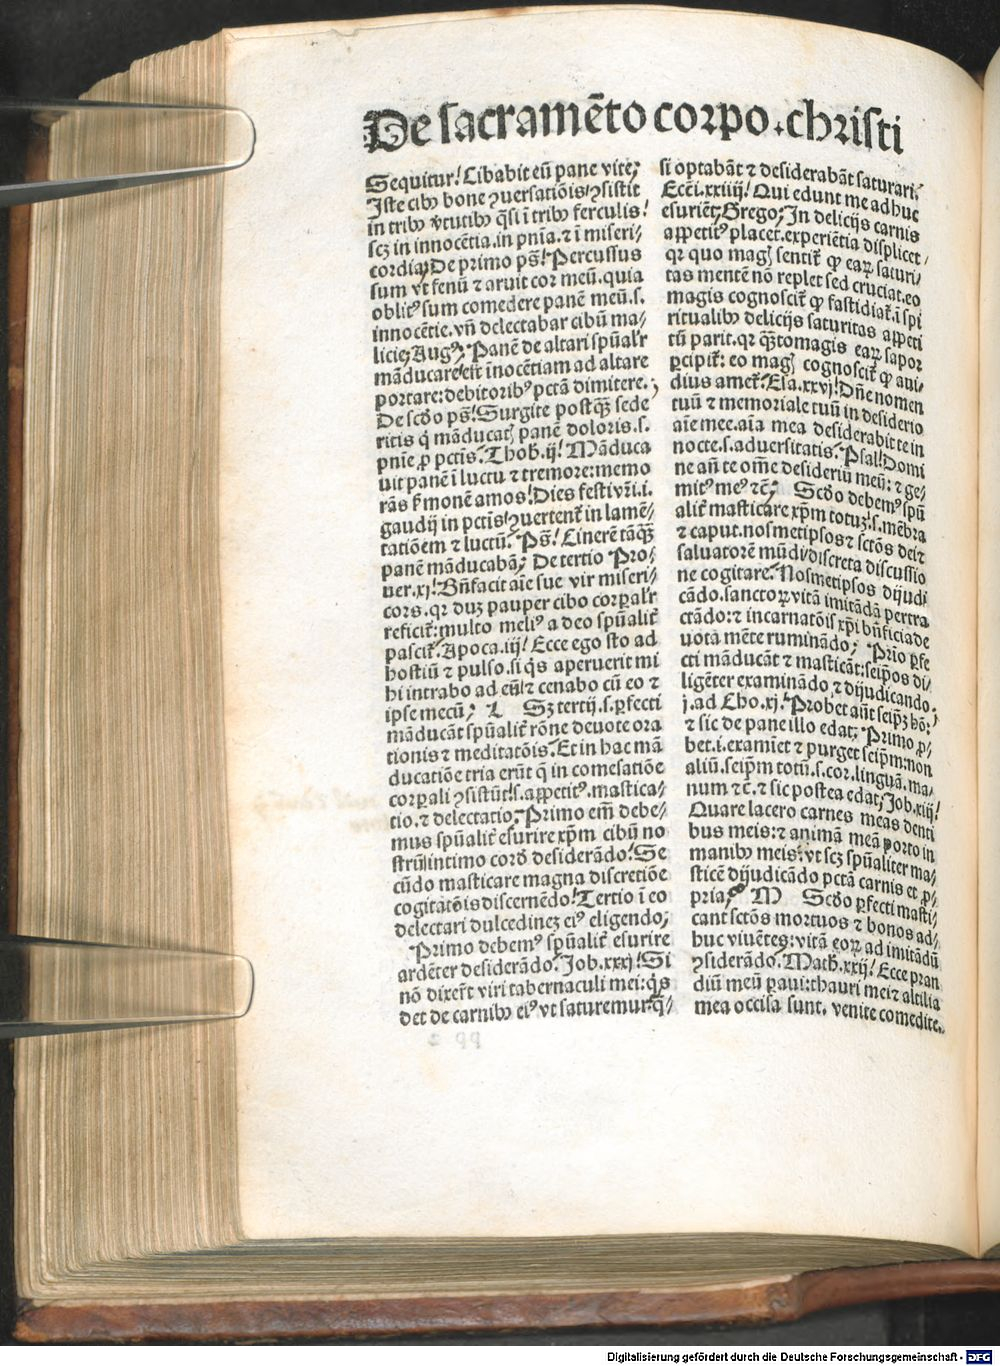 De sacramēto corpo.christi
Sequitur/ Cibabit eū pane vite;
Iste cibꝰ bone ↄuersatiōis/ ↄsistit
in tribꝰ v̓tutibꝰ q̄si ī tribꝰ ferculis/
scꝫ in innocētia.in pnīa.⁊ ī miseri/
cordia; De primo ps̄/ Percussus
sum vt fenū ⁊ aruit cor meū.quia
oblitꝰ sum comedere panē meū.s.
innocētie.vn̄ delectabar cibū ma/
licie; Augꝰ; Panē de altari spūalr̄
māducare/est īnocētiam ad altare
portare:debitoribꝰ pctā dimitere.;
De scd̄o ps̄/ Surgite postqꝫ̄ sede
ritis q̇ māducatꝭ panē doloris.s.
pnīe ꝑ pctīs. Thob̄.ij/ Māduca
uit panē ī luctu ⁊ tremore:memo
rās s̓monē amos/ Dies festi vr̄i.i.
gaudij in pctīs/ ↄuertent̄ in lamē/
tatiōem ⁊ luctū. Ps̄/ Cinerē tāqꝫ̄
panē māducabā; De tertio Pro/
uer.xj/ Bn̄facit aīe sue vir miseri/
cors.qr duꝫ pauper cibo corꝑalr̄
reficit̄:multo meliꝰ a deo spūalit̄
pascit̄. Apoca.iij/ Ecce ego sto ad
hostiū ⁊ pulso.si q̇s aperuerit mi
hi intrabo ad eū/ ⁊ cenabo cū eo ⁊
ipse mecū; L Sꝫ tertij.s.ꝑfecti
māducāt spūalit̄ rōne deuote ora
tionis ⁊ meditatōis. Et in hac mā
ducatiōe tria erūt q̄ in comesatiōe
corꝑali ↄsistūt/.s.appetitꝰ.mastica/
tio.⁊ delectatio; Primo em̄ debe/
mus spūalit̄ esurire xp̄m cibū no
strū/intimo cord̓ desiderādo/ Se
cūdo masticare magna discretiōe
cogitatōis discernēdo/ Tertio ī eo
delectari dulcedineꝫ eiꝰ eligendo;
Primo debemꝰ spūalit̄ esurire
ardēter desiderādo. Job.xxxj/ Si
nō dixer̄t viri tabernaculi mei:q̇s
det de carnibꝰ eiꝰ vt saturemur. q̇/
si optabāt ⁊ desiderabāt saturari.
Ecci.xxiiij/ Qui edunt me adhuc
esuriēt; Grego; In delicijs carnis
appetitꝰ placet.experiētia displicet/
qr quo magꝭ sentit̄ ꝙ eaꝝ saturi/
tas mentē nō replet sed cruciat.eo
magis cognoscit̄ ꝙ fastidiat̄.ī spi
ritualibꝰ delicijs saturitas appeti
tū parit.qr qꝫ̄tomagis eaꝝ sapor
ꝑcipit̄: eo magꝭ cognoscit̄ ꝙ aui/
dius amet̄. Esa.xxvj/ Dn̄e nomen
tuū ⁊ memoriale tuū in desiderio
aīe mee.aīa mea desiderabit te in
nocte.s.aduersitatis. Psal/ Domi
ne an̄ te om̄e desideriū meū: ⁊ ge/
mitꝰ meꝰ ⁊c̄; Scd̄o debemꝰ spū
alit̄ masticare xp̄m totuꝫ/.s.mēbra
⁊ caput.nosmetipsos ⁊ sctōs dei ⁊
saluatorē mūdi/discreta discussio
ne cogitare. Nosmetipsos dijudi
cādo.sanctoꝝ vitā imitādā pertra
ctādo: ⁊ incarnatōis xp̄i bn̄ficia de
uotā mēte ruminādo; Prīo ꝑfe
cti māducāt ⁊ masticāt:seip̄os di/
ligēter examinādo ⁊ dijudicando.
j.ad Cho.xj. Probet aūt seip̄ꝫ hō:
⁊ sic de pane illo edat; Primo ꝓ/
bet.i.examiet ⁊ purget seip̄m:non
aliū.seip̄m totū.s.cor.linguā.ma/
num ⁊c̄.⁊ sic postea edat; Job.xiij/
Quare lacero carnes meas denti
bus meis:⁊ animā meā porto in
manibꝰ meis. vt scꝫ spūaliter ma/
sticē dijudicādo pctā carnis et ꝓ/
pria; M Scd̄o ꝑfecti masti/
cant sctōs mortuos ⁊ bonos ad/
huc viuētes:vitā eoꝝ ad imitādū
ↄsiderādo. Math̄.xxij/ Ecce pran
diū meū paui:thauri mei ⁊ altilia
mea occisa sunt. venite comedite.
Digitalisierung gefördert durch die Deutsche Forschungsgemeinschaft - DFG